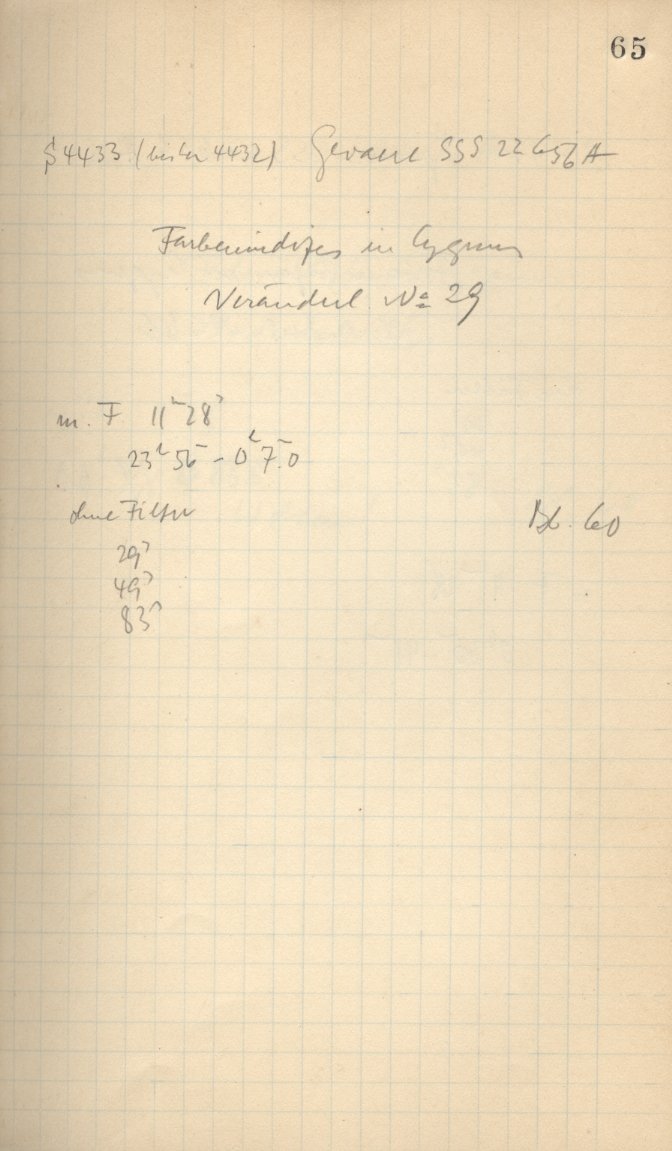 65
S4433 (bisher 4432) Gevaert SSS 22656A
Farbenindizes in Cygnus
Veränderl. No 29
m. F 11m 28s
23h 56m - 0h 7m.0
ohne Filter
29s
49s
83s
Bl. 60